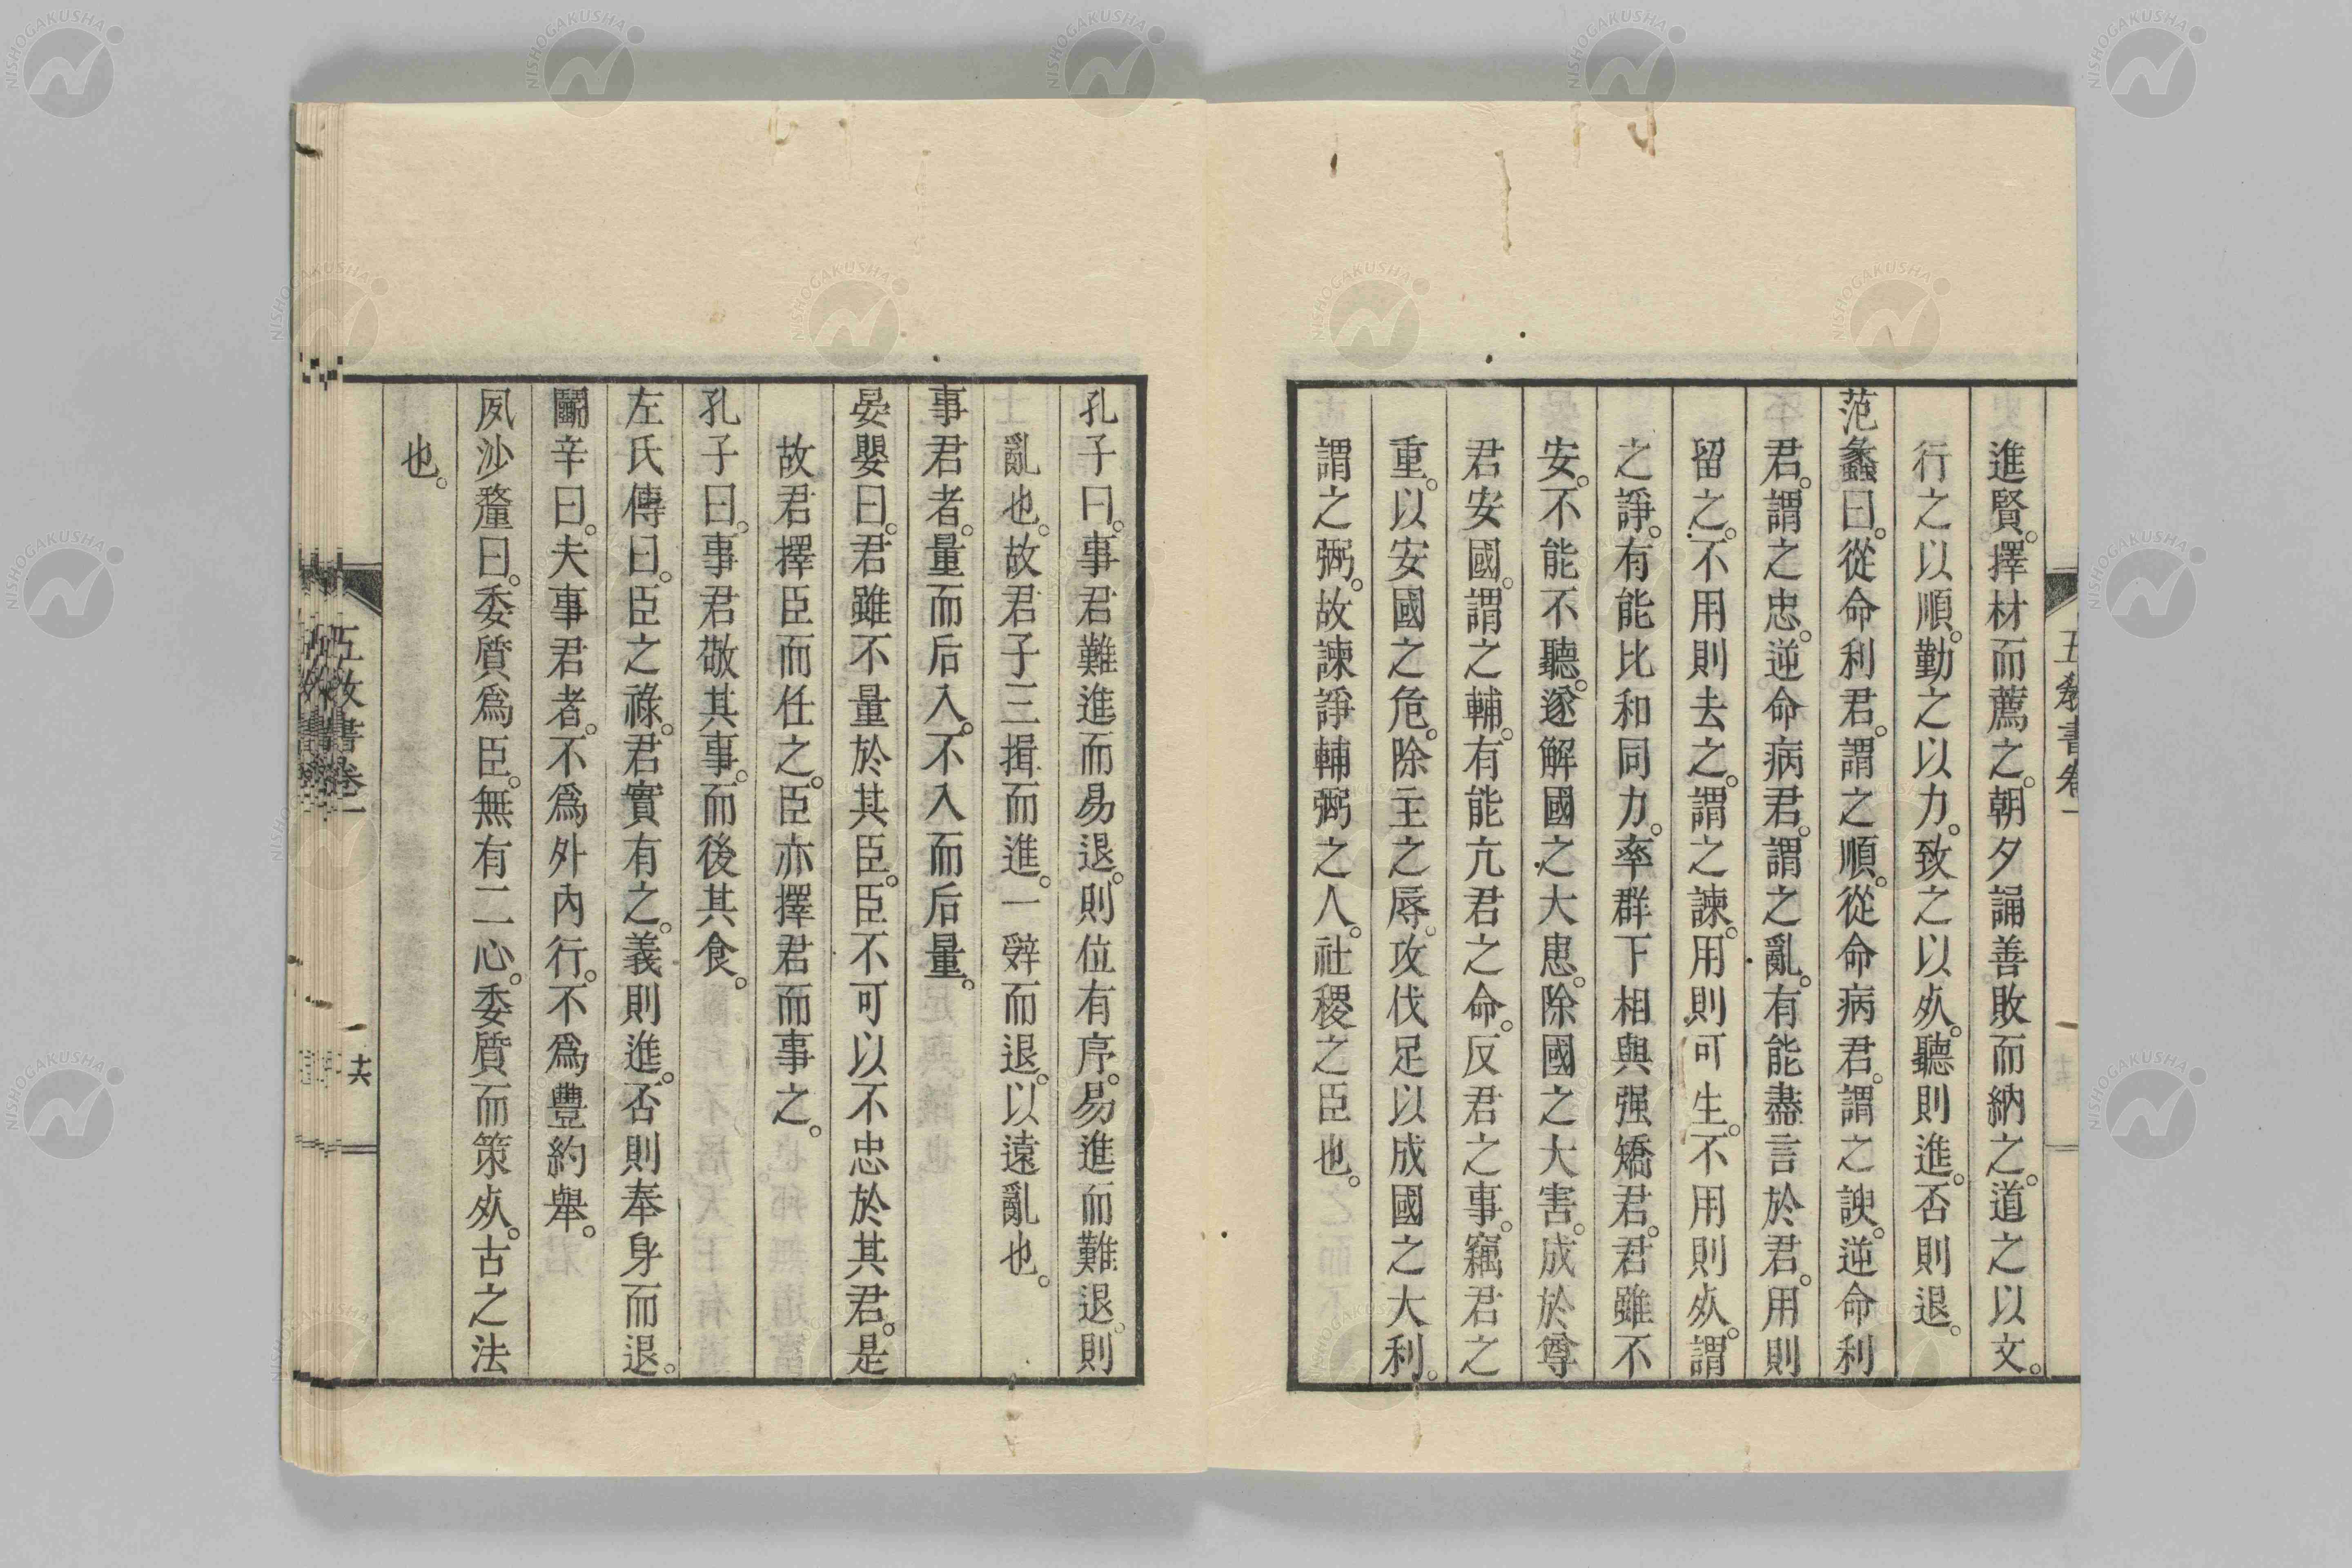 進賢。擇材而薦之。朝夕誦善敗而納之。道之以文。
行之以順。勤之以力。致之以㱙。聽則進。否則退。
范蠡曰。從命利君。謂之順。從命病君。謂之諛。逆命利
君。謂之忠。逆命病君。謂之亂。有能盡言於君。用則
留之。不用則去之。謂之諫。用則可生。不用則㱙。謂
之諍。有能比和同力。率群下相與强矯君。君雖不
安。不能不聽。遂解國之大患。除國之大害。成於尊
君安國。謂之輔。有能亢君之命。反君之事。竊君之
重。以安國之危。除主之辱。攻伐足以成國之大利。
謂之弼。故諫諍輔弼之人。社稷之臣也。
五敎書卷一
孔子曰。事君難進而易退。則位有序。易進而難退。則
亂也。故君子三揖而進。一辤而退。以遠亂也。
事君者。量而后入。不入而后量。
晏嬰曰。君雖不量於其臣。臣不可以不忠於其君。是
故君擇臣而任之。臣亦擇君而事之。
孔子曰。事君敬其事。而後其食。
左氏傳曰。臣之祿。君實有之。義則進。否則奉身而退。
鬭辛曰。夫事君者。不爲外內行。不爲豐約舉。
夙沙釐曰。委質爲臣。無有二心。委質而策㱙。古之法
也。
五敎書卷一
十六
NISHOGAKUSHA